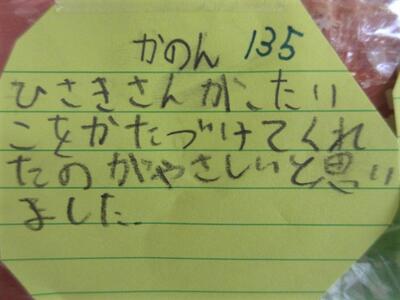 かのん 135
ひさきさんがこたい
こをかたづけてくれ
たのがやさしいと思い
ました。